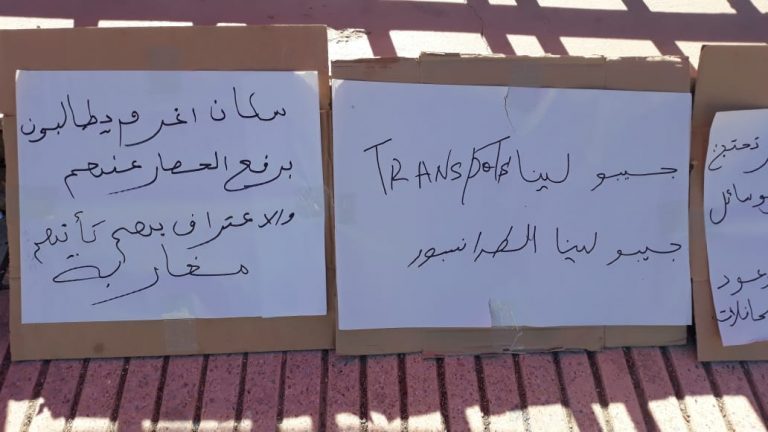 سكان اغرم يطالبون
برفع الحصار عنهم
والاعتراف بهم كأنهم
مغاربة
جيبو لينا TRANSpots
جيبو لينا الطرانسبور
تحتج
وسائل
وعود